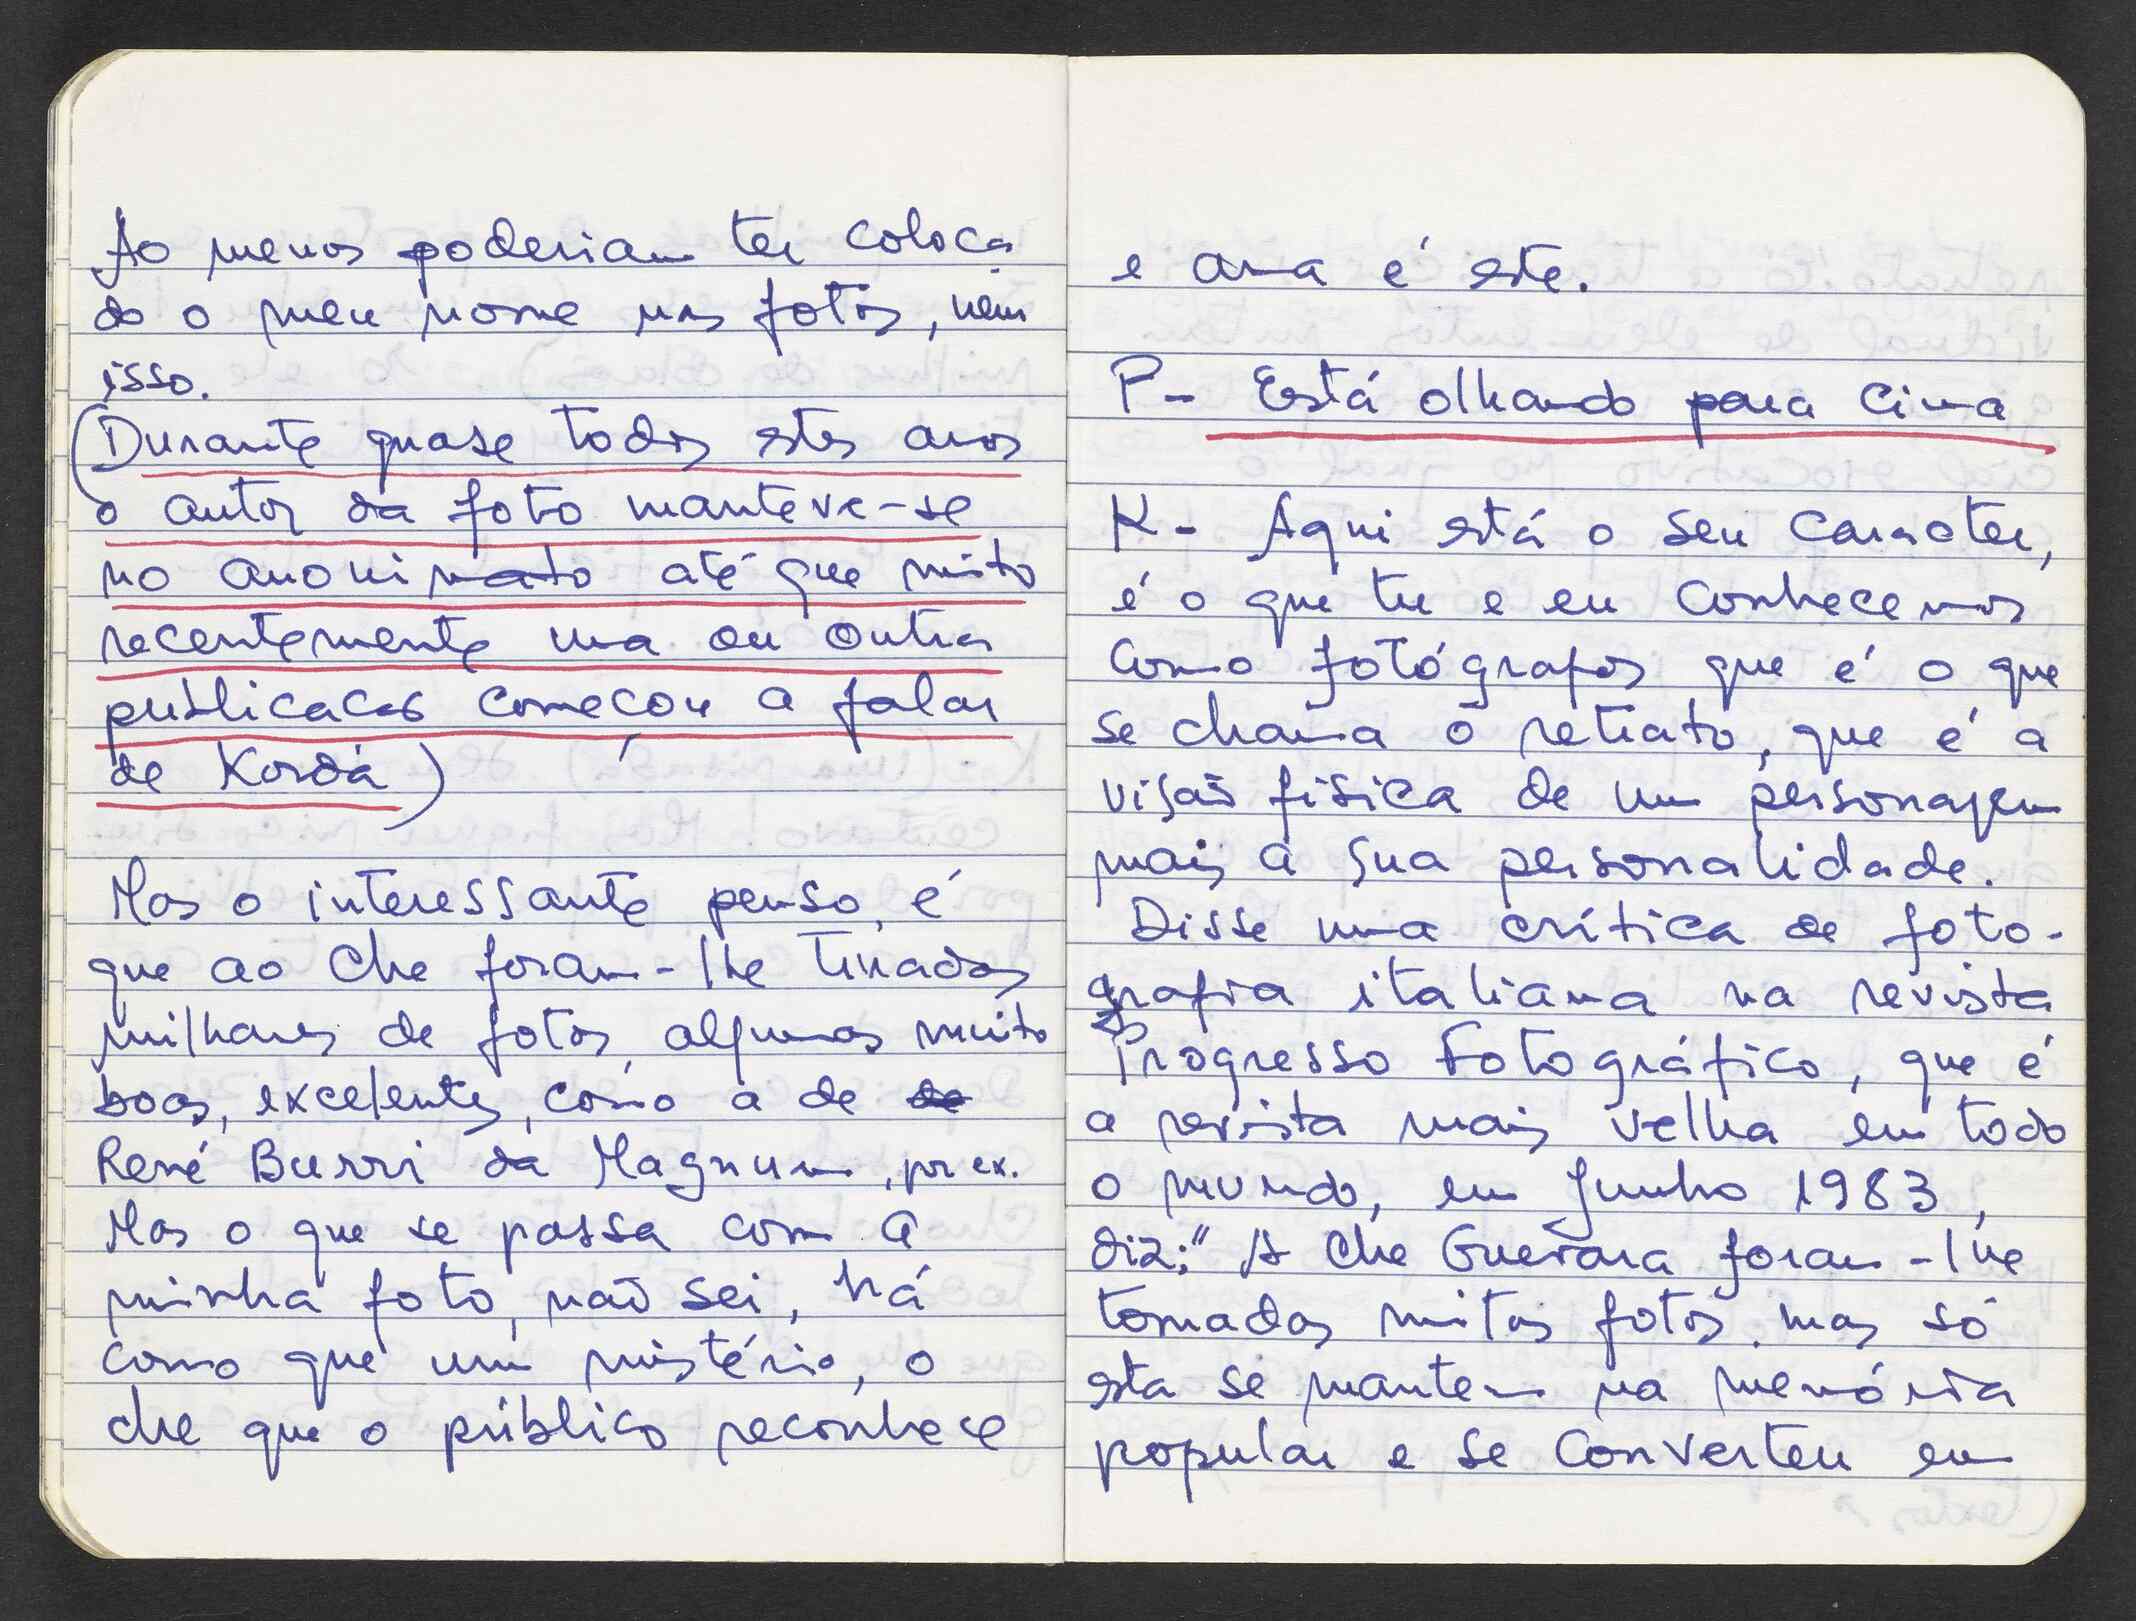 Ao menos poderiam ter coloca
do o meu nome nas fotos, nem
isso.
(Durante quase todos estes anos
o autor da foto manteve-se
no anonimato até que muito
recentemente uma ou outra
publicacas começou a falar
de Korda)
Mas o interessante penso, é
que ao Che foram-lhe tiradas
milhares de fotos, algumas muito
boas, excelentes, como a de de
René Burri da Magnum, por ex.
Mas o que se passa com a
minha foto, não sei, há
como que um mistério, o
che que o público reconhece
e ama é este.
P- Está olhando para cima
K- Aqui está o seu caracter,
é o que tu e eu conhecemos
como fotógrafos que é o que
se chama o retrato, que é a
visão fisica de um personagem
mais a sua personalidade.
Disse uma crítica de foto-
grafia italiana na revista
Progresso Fotográfico, que é
a revista mais velha em todo
o mundo, em Junho 1983,
diz: "A Che Guevara foram-lhe
tomadas muitas fotos, mas só
esta se mantem na memória
popular e se converteu em